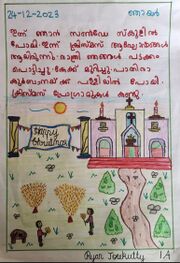 24-12-2023 ഞായർ
ഇന്ന് ഞാൻ സൺഡേ സ്കൂളിൽ
പോയി. ഇന്ന് ക്രിസ്മസ് ആഘോഷങ്ങൾ
ആയിരുന്നു. രാത്രി ഞങ്ങൾ പടക്കം
പൊട്ടിച്ചു. കേക്ക് മുറിച്ചു. പാതിരാ
കുർബാനക്ക് പള്ളിയിൽ പോയി.
ക്രിസ്മസ് പ്രോഗ്രാമുകൾ കണ്ടു.
Happy
Christmas
Ryan Joekutty 1A